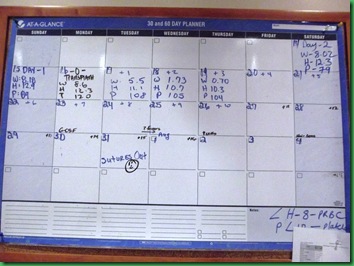 AT-A-GLANCE
30 and 60 DAY PLANNER
SUNDAY MONDAY TUESDAY WEDNESDAY THURSDAY FRIDAY SATURDAY
14 Day-2
W-8.02
H-12.3
P-79
15 DAY-1
16 -0-
Transplant
W 8.6
H 12.3
P 120
17 +1
W 5.5
H 11.1
P 108
18 +2
W 1.73
H 10.7
P 105
19 +3
W 0.70
H 10.3
P 104
20 +4
21 +5
22 +6
23 +7
24 +8
25 +9
26 +10
27 +11
28 +12
29 +13
G-CSF
30 +14
31 +15
Sutures Out
Aug
2
3
< H-8-PRBC